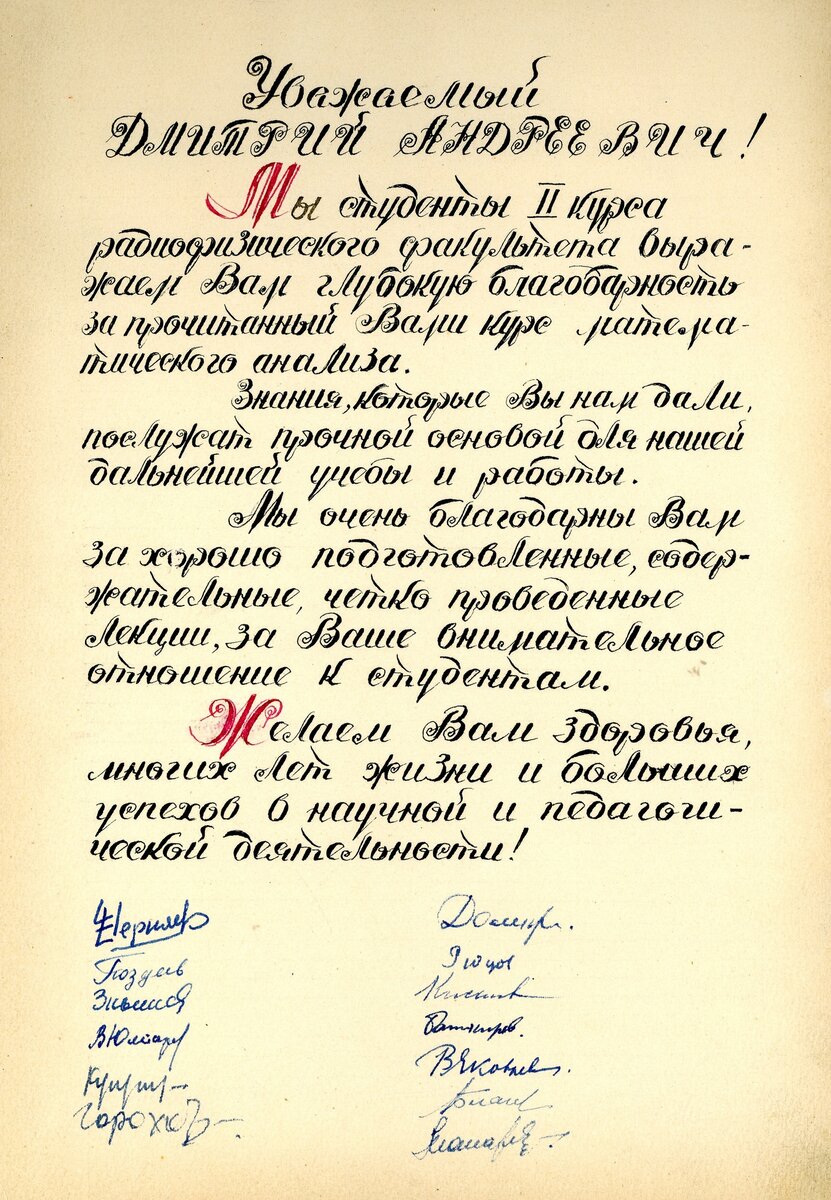 Уважаемый
ДМИТРИЙ АНДРЕЕВИЧ!
Мы студенты II курса
радиофизического факультета выра-
жаем Вам глубокую благодарность
за прочитанный Вами курс матема-
тического анализа.
Знания, которые Вы нам дали,
послужат прочной основой для нашей
дальнейшей учебы и работы.
Мы очень благодарны Вам
за хорошо подготовленные, содер-
жательные, четко проведенные
лекции, за Ваше внимательное
отношение к студентам.
Желаем Вам здоровья,
многих лет жизни и больших
успехов в научной и педагоги-
ческой деятельности!
ВЯковлев.
Горохов